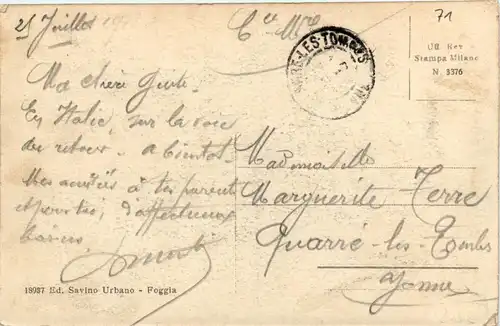 25 Juillet
71
QUARRE-LES-TOMBES
Uff. Rev.
Stampa Milano
N. 3376
Ma chère
En Italie, sur la voie
du retour. a bientôt.
Mes amitiés à tes parents
et pour toi, d'affectueux
baisers
Mademoiselle
Marguerite Terre
Quarré-les-Tombes
Yonne
18937 Ed. Savino Urbano - Foggia